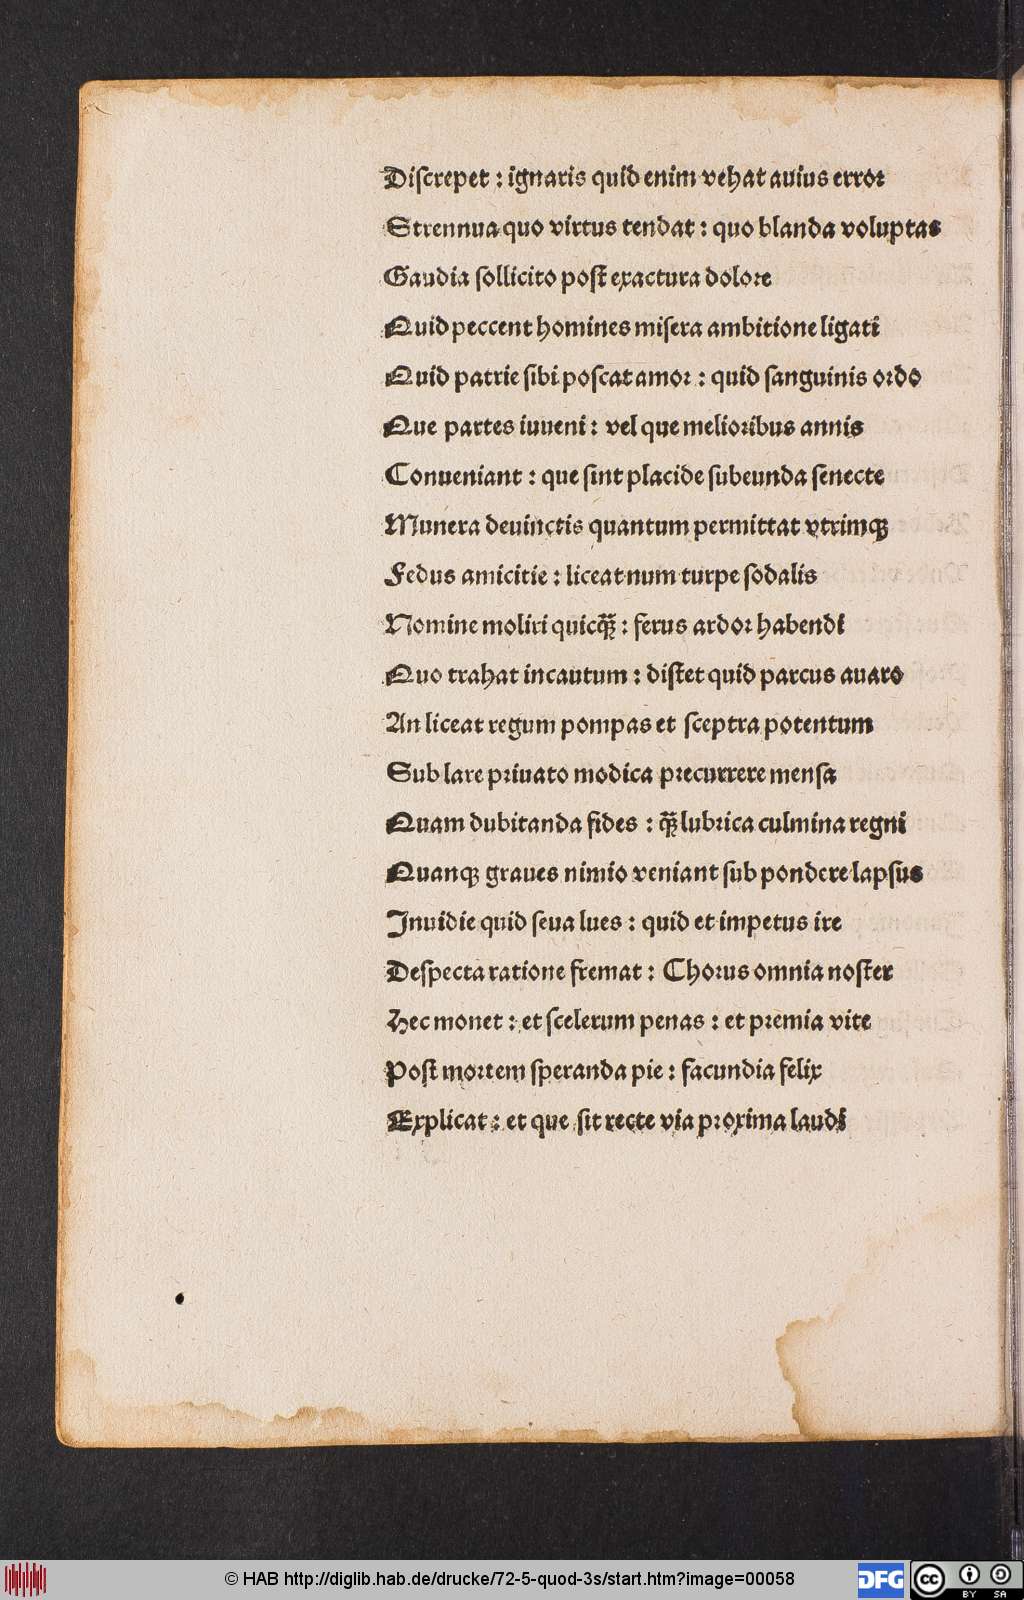 Diſcrepet : ignaris quid enim vehat auius erroꝛ
Strennua quo virtus tendat : quo blanda voluptas
Gaudia ſollicito poſt exactura doloꝛe
Quid peccent homines miſera ambitione ligati
Quid patrie ſibi poſcat amoꝛ : quid ſanguinis oꝛdo
Que partes iuueni : vel que melioꝛibus annis
Conueniant : que ſint placide ſubeunda ſenecte
Munera deuinctis quantum permittat vtrimqꝫ
Fedus amicitie : liceat num turpe ſodalis
Nomine moliri quicqꝫ̃ : ferus ardoꝛ habendi
Quo trahat incautum : diſtet quid parcus auaro
An liceat regum pompas et ſceptra potentum
Sub lare pꝛiuato modica pꝛecurrere menſa
Quam dubitanda fides : qꝫ̃ lubꝛica culmina regni
Quanqꝫ graues nimio veniant ſub pondere lapſus
Inuidie quid ſeua lues : quid et impetus ire
Deſpecta ratione fremat : Choꝛus omnia noſter
Hec monet : et ſcelerum penas : et pꝛemia vite
Poſt moꝛtem ſperanda pie : facundia felix
Explicat : et que ſit recte via pꝛoxima laudi
© HAB http://diglib.hab.de/drucke/72-5-quod-3s/start.htm?image=00058
DFG
cc BY SA